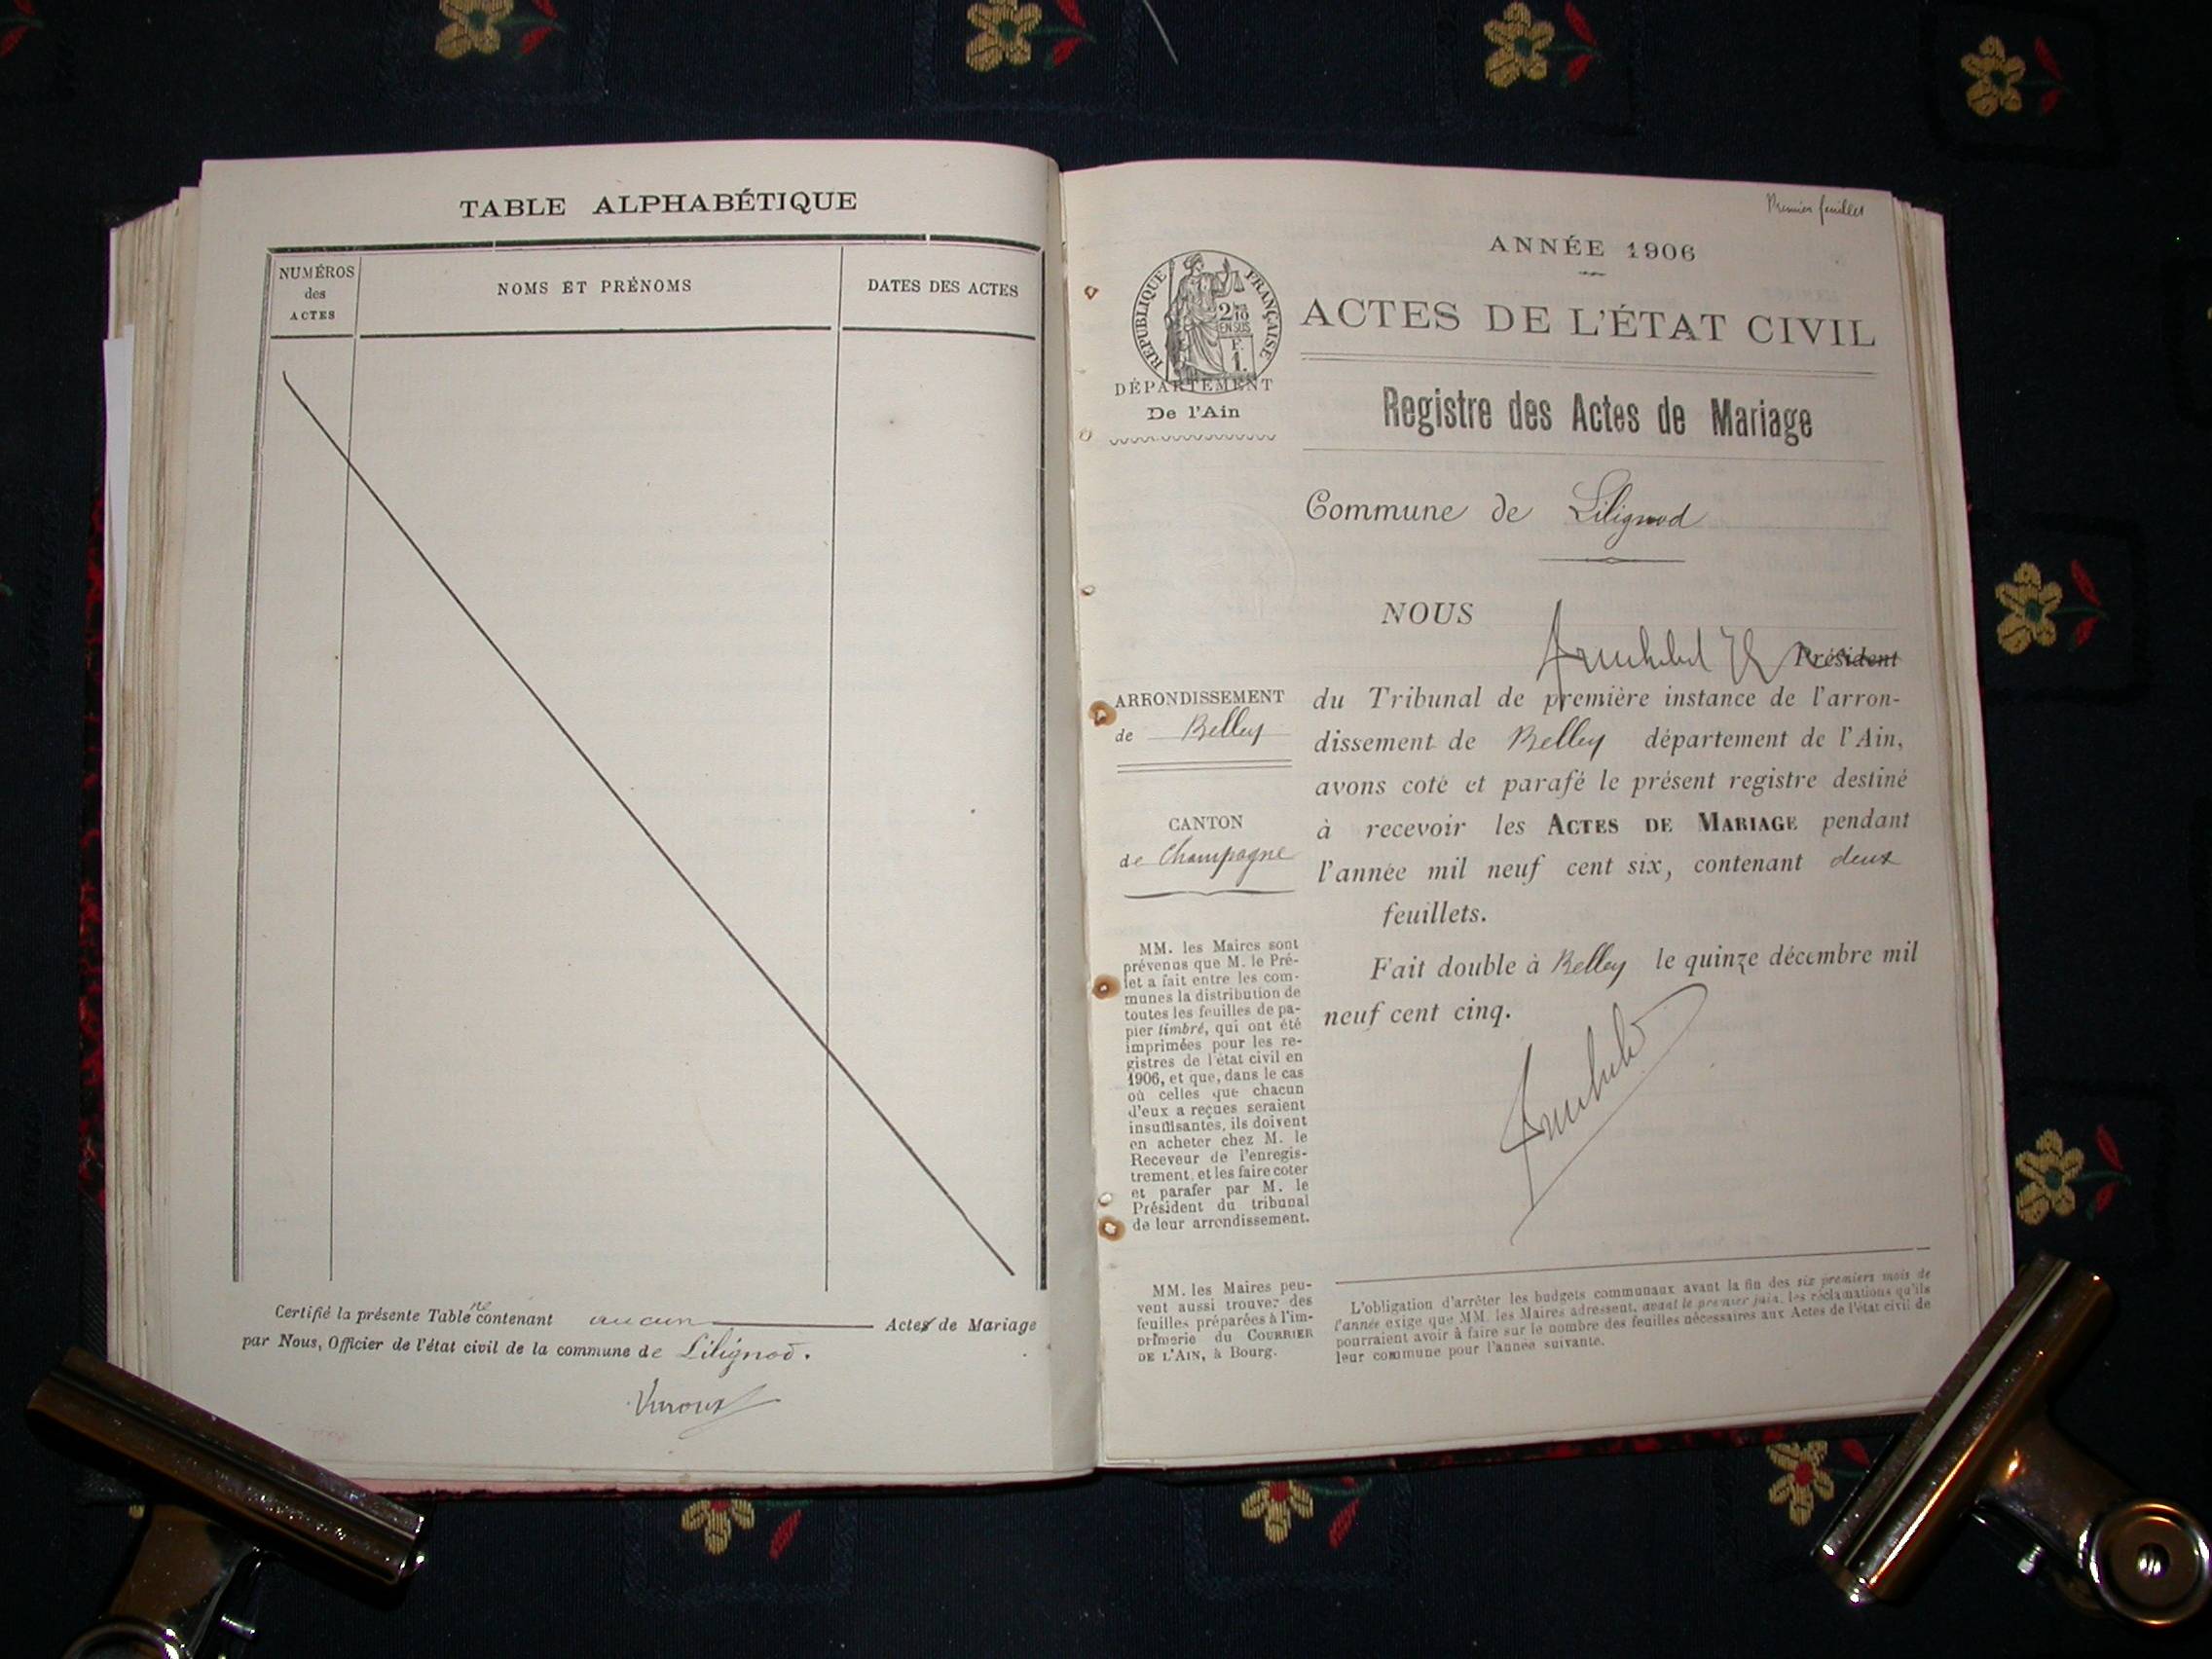 TABLE ALPHABÉTIQUE
NUMÉROS
des
ACTES
NOMS ET PRÉNOMS
DATES DES ACTES
Certifié la présente Table ne contenant aucun Acte de Mariage
par Nous, Officier de l'état civil de la commune de Lilignod.
Premier feuillet
ANNÉE 1906
RÉPUBLIQUE FRANÇAISE
2/10
EN SUS
F.
1.
ACTES DE L'ÉTAT CIVIL
DÉPARTEMENT
De l'Ain
Registre des Actes de Mariage
Commune de Lilignod
NOUS
Président
ARRONDISSEMENT
de Belley
CANTON
de Champagne
du Tribunal de première instance de l'arron-
dissement de Belley département de l'Ain,
avons coté et parafé le présent registre destiné
à recevoir les ACTES DE MARIAGE pendant
l'année mil neuf cent six, contenant deux
feuillets.
Fait double à Belley le quinze décembre mil
neuf cent cinq.
MM. les Maires sont
prévenus que M. le Pré-
fet a fait entre les com-
munes la distribution de
toutes les feuilles de pa-
pier timbré, qui ont été
imprimées pour les re-
gistres de l'état civil en
1906, et que, dans le cas
où celles que chacun
d'eux a reçues seraient
insuffisantes, ils doivent
en acheter chez M. le
Receveur de l'enregis-
trement, et les faire coter
et parafer par M. le
Président du tribunal
de leur arrondissement.
MM. les Maires peu-
vent aussi trouver des
feuilles préparées à l'im-
primerie du COURRIER
DE L'AIN, à Bourg.
L'obligation d'arrêter les budgets communaux avant la fin des six premiers mois de
l'année exige que MM. les Maires adressent, avant le premier juin, les réclamations qu'ils
pourraient avoir à faire sur le nombre des feuilles nécessaires aux Actes de l'état civil de
leur commune pour l'année suivante.